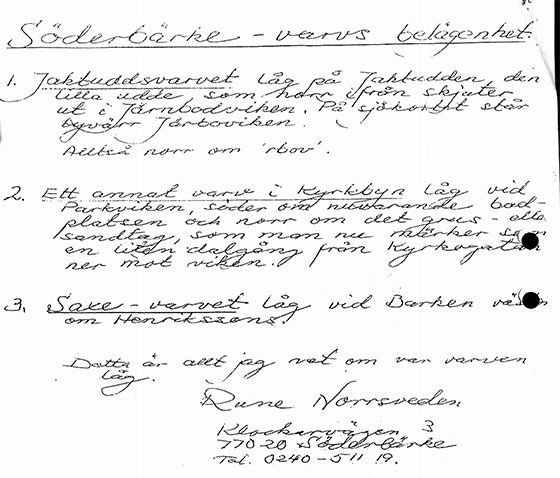 Söderbärke - varvs belägenhet.
1. Jaktuddsvarvet låg på Jaktudden, den
lilla udde som norr ifrån skjuter
ut i Järnbodviken. På sjökortet står
byvärr Järboviken.
Alltså norr om 'rbov'.
2. Ett annat varv i Kyrkbyn låg vid
Parkviken, söder om nuvarande bad-
platsen och norr om det grus- elle
sandtag, som man nu märker som
en liten dalgång från Kyrkogatan
ner mot viken.
3. Saxe-varvet låg vid Barken
om Henrikssons.
Detta är allt jag vet om var varven
låg.
Rune Norrsveden
Klockarvägen 3
770 20 Söderbärke
Tel. 0240-511 19.